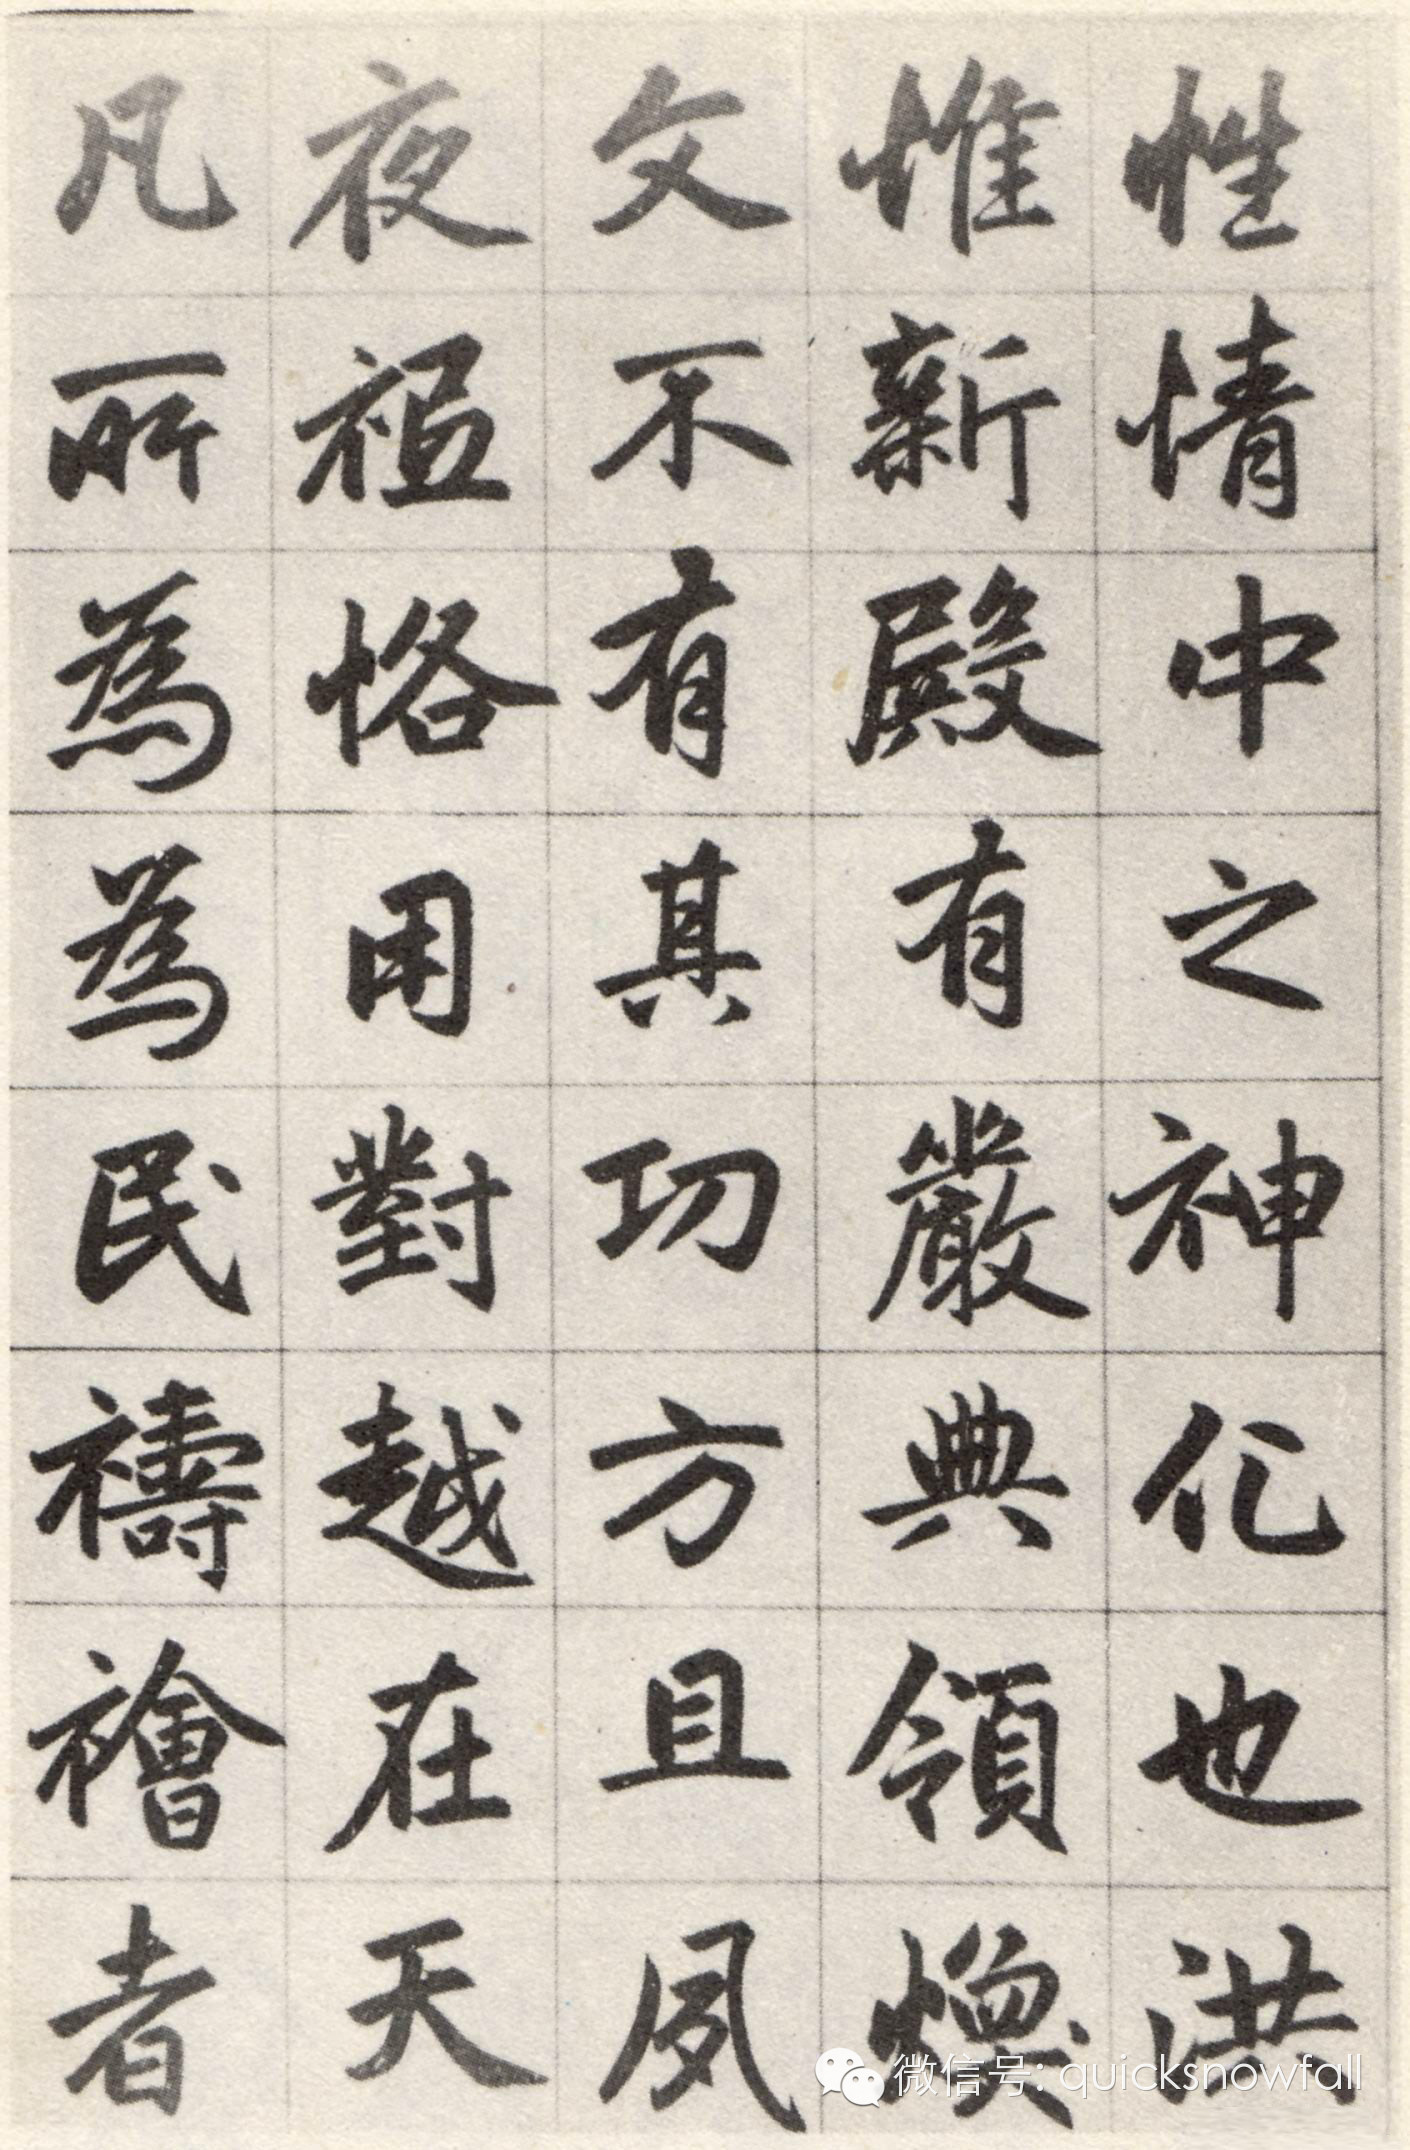 性情中之神化也洪
惟新殿有嚴典領煥
文不有其功方且夙
夜祗恪用對越在天
凡所為為民禱禬者
微信号: quicksnowfall